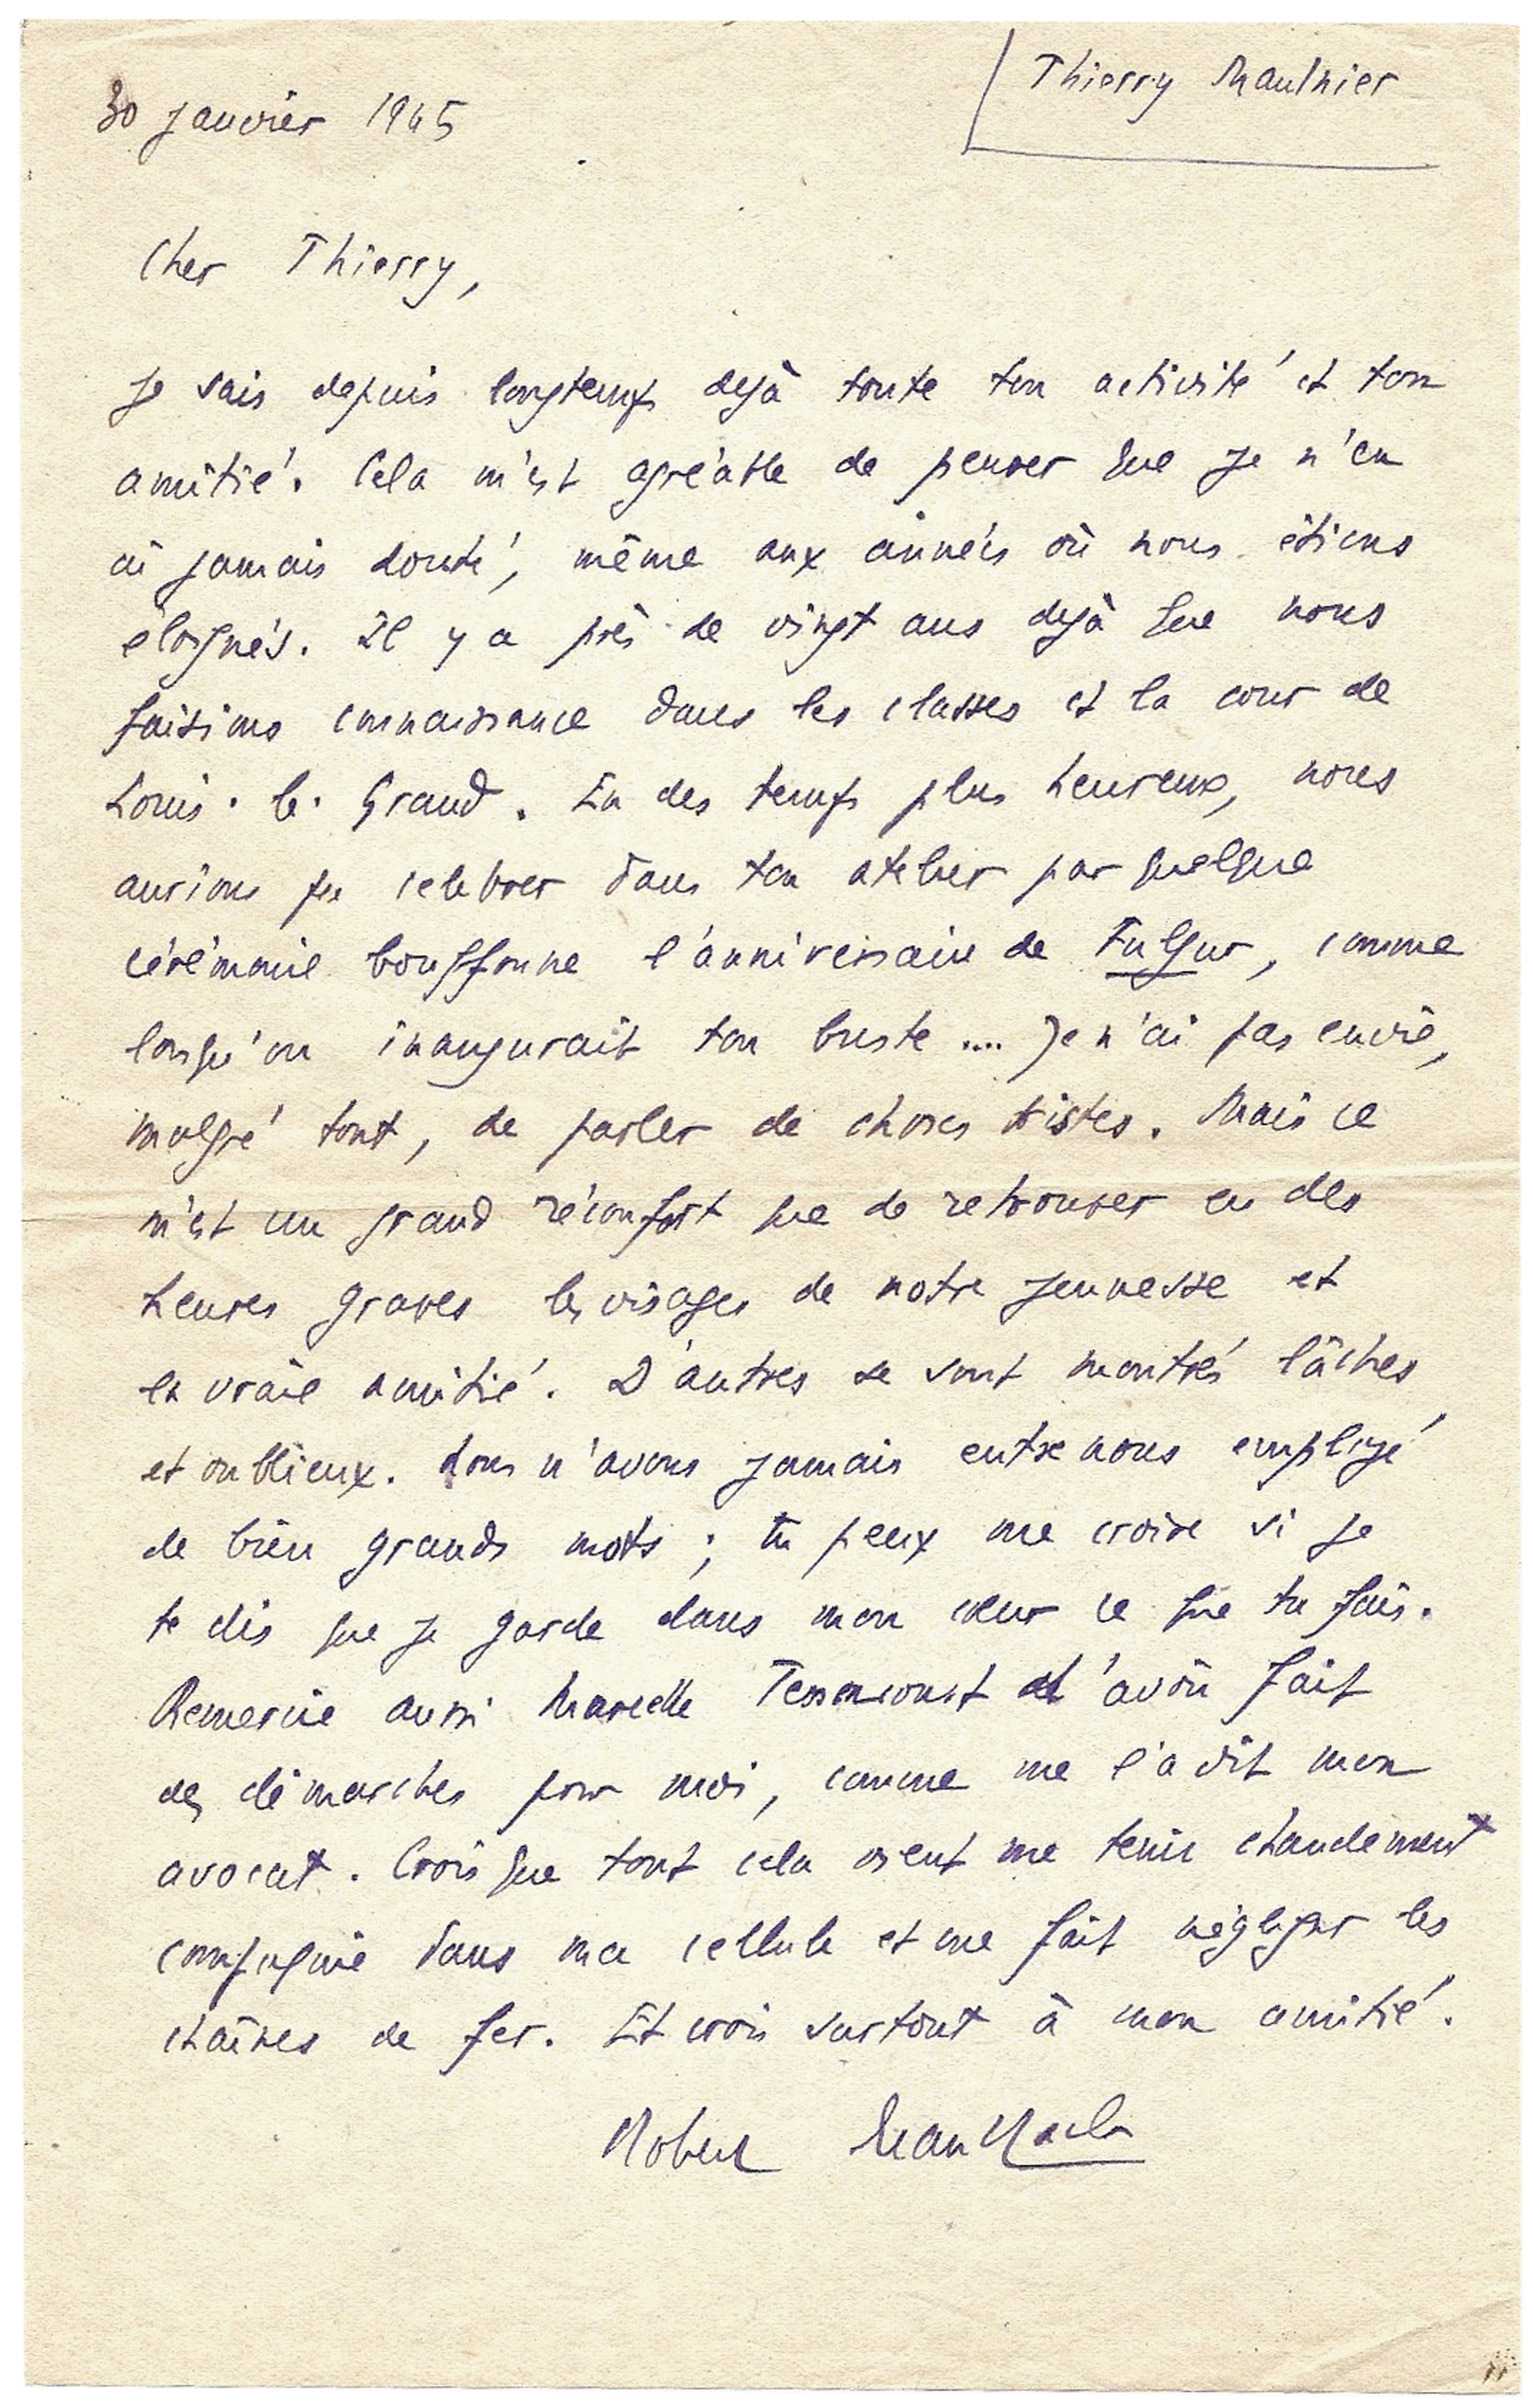 Thierry Maulnier
30 janvier 1945
Cher Thierry,
Je sais depuis longtemps dejà toute ton activité et ton
amitié. Cela m'est agréable de penser que je n'en
ai jamais douté, même aux années où nous étions
éloignés. Il y a près de vingt ans dejà que nous
faisions connaissance dans les classes et la cour de
Louis-le-Grand. En des temps plus heureux, nous
aurions pu celebrer dans ton atelier par quelque
cérémonie bouffonne l'anniversaire de Fulgur, comme
lorsqu'on inaugurait ton buste .... Je n'ai pas envie,
malgré tout, de parler de choses tristes. Mais ce
m'est un grand réconfort que de retrouver en des
heures graves les visages de notre jeunesse et
la vraie amitié. D'autres se sont montrés lâches
et oublieux. Nous n'avons jamais entre nous employé
de bien grands mots ; tu peux me croire si je
te dis que je garde dans mon cœur ce que tu fais.
Remercie aussi Marcelle Tassencourt d'avoir fait
des démarches pour moi, comme me l'a dit mon
avocat. Crois que tout cela vient me tenir chaudement
compagnie dans ma cellule et me fait négliger les
chaînes de fer. Et crois surtout à mon amitié.
Robert Brasillach